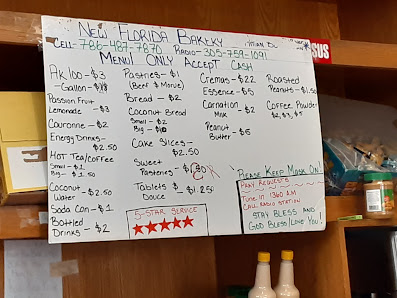 New Florida Bakery
Cell- 786-487-7870 Radio- 305-759-1091
Menu Only Accept Cash
AK100 - $3
- Gallon -
Passion Fruit
Lemonade - $3
Couronne - $2
Energy Drinks -
$2.50
Hot Tea/Coffee
Small - $1
Big - $1.50
Coconut - $2.50
Water
Soda Can - $1
Bottled
Drinks - $2
Pastries - $1
(Beef & Morue)
Bread - $2
Coconut Bread
Small - $2
Big - $10
Cake Slices -
$2.50
Sweet
Pasteries -
Tablets $
Douce - $1.250
5-Star Service
★★★★★
Cremas - $22
Essence - $5
Carnation
Milk - $2
Peanut
Butter - $5
Roasted
Peanuts - $1.50
Coffee Powder
$2, $3, $5
Please Keep Mask On!
Pray Requests
Tune in 1360 AM
Call Radio Station
Stay Bless and
God Bless/Love You!
SUS